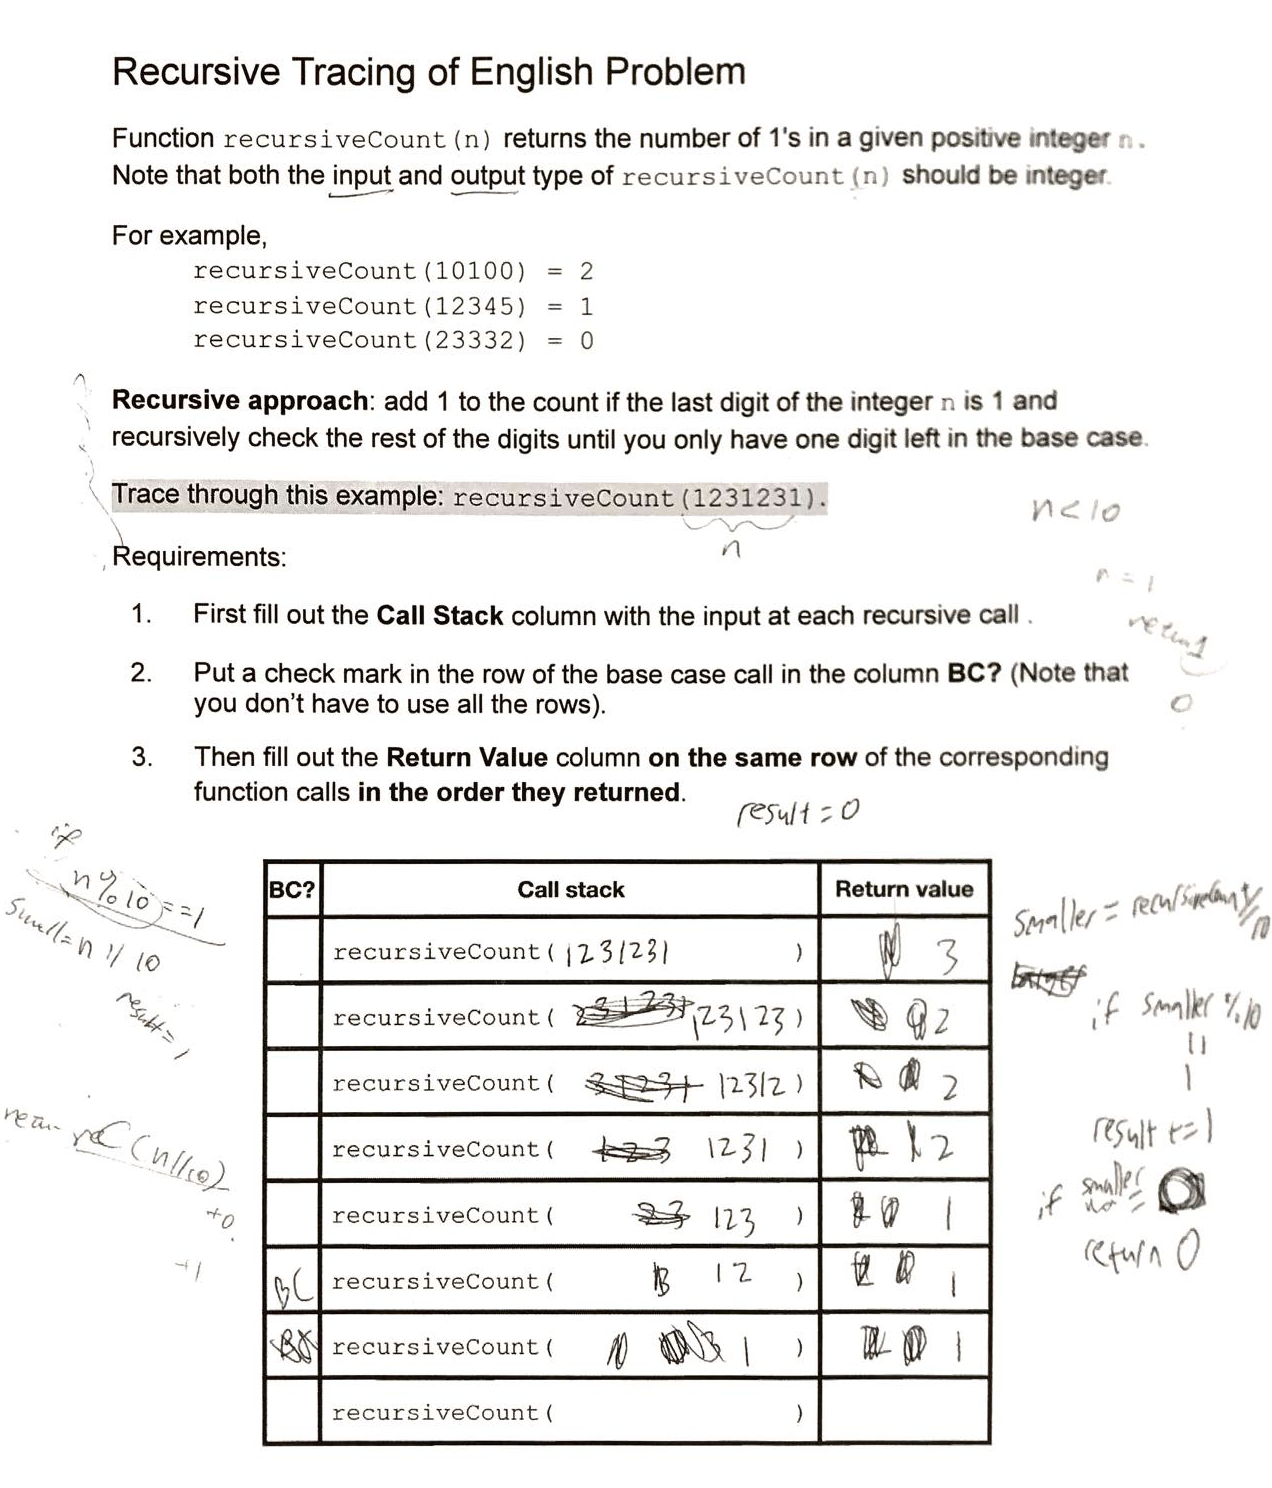 Recursive Tracing of English Problem
Function recursiveCount(n) returns the number of 1's in a given positive integer n.
Note that both the input and output type of recursiveCount(n) should be integer.
For example,
recursiveCount(10100) = 2
recursiveCount(12345) = 1
recursiveCount(23332) = 0
Recursive approach: add 1 to the count if the last digit of the integer n is 1 and
recursively check the rest of the digits until you only have one digit left in the base case.
Trace through this example: recursiveCount(1231231).
n<10
n
Requirements:
n = 1
1. First fill out the Call Stack column with the input at each recursive call .
return 1
2. Put a check mark in the row of the base case call in the column BC? (Note that
you don't have to use all the rows).
0
3. Then fill out the Return Value column on the same row of the corresponding
function calls in the order they returned.
result = 0
if
n%10==1
small=n//10
result=1
BC? Call stack Return value
smaller = recursiveCount
recursiveCount(1231231) 3
recursiveCount(123123) 2
if smaller %10
11
1
recursiveCount(12312) 2
recursiveCount(1231) 2
result +=1
rec(n//10)
+0
+1
recursiveCount(123) 1
if smaller
return 0
BC recursiveCount(12) 1
recursiveCount(1) 1
recursiveCount( )